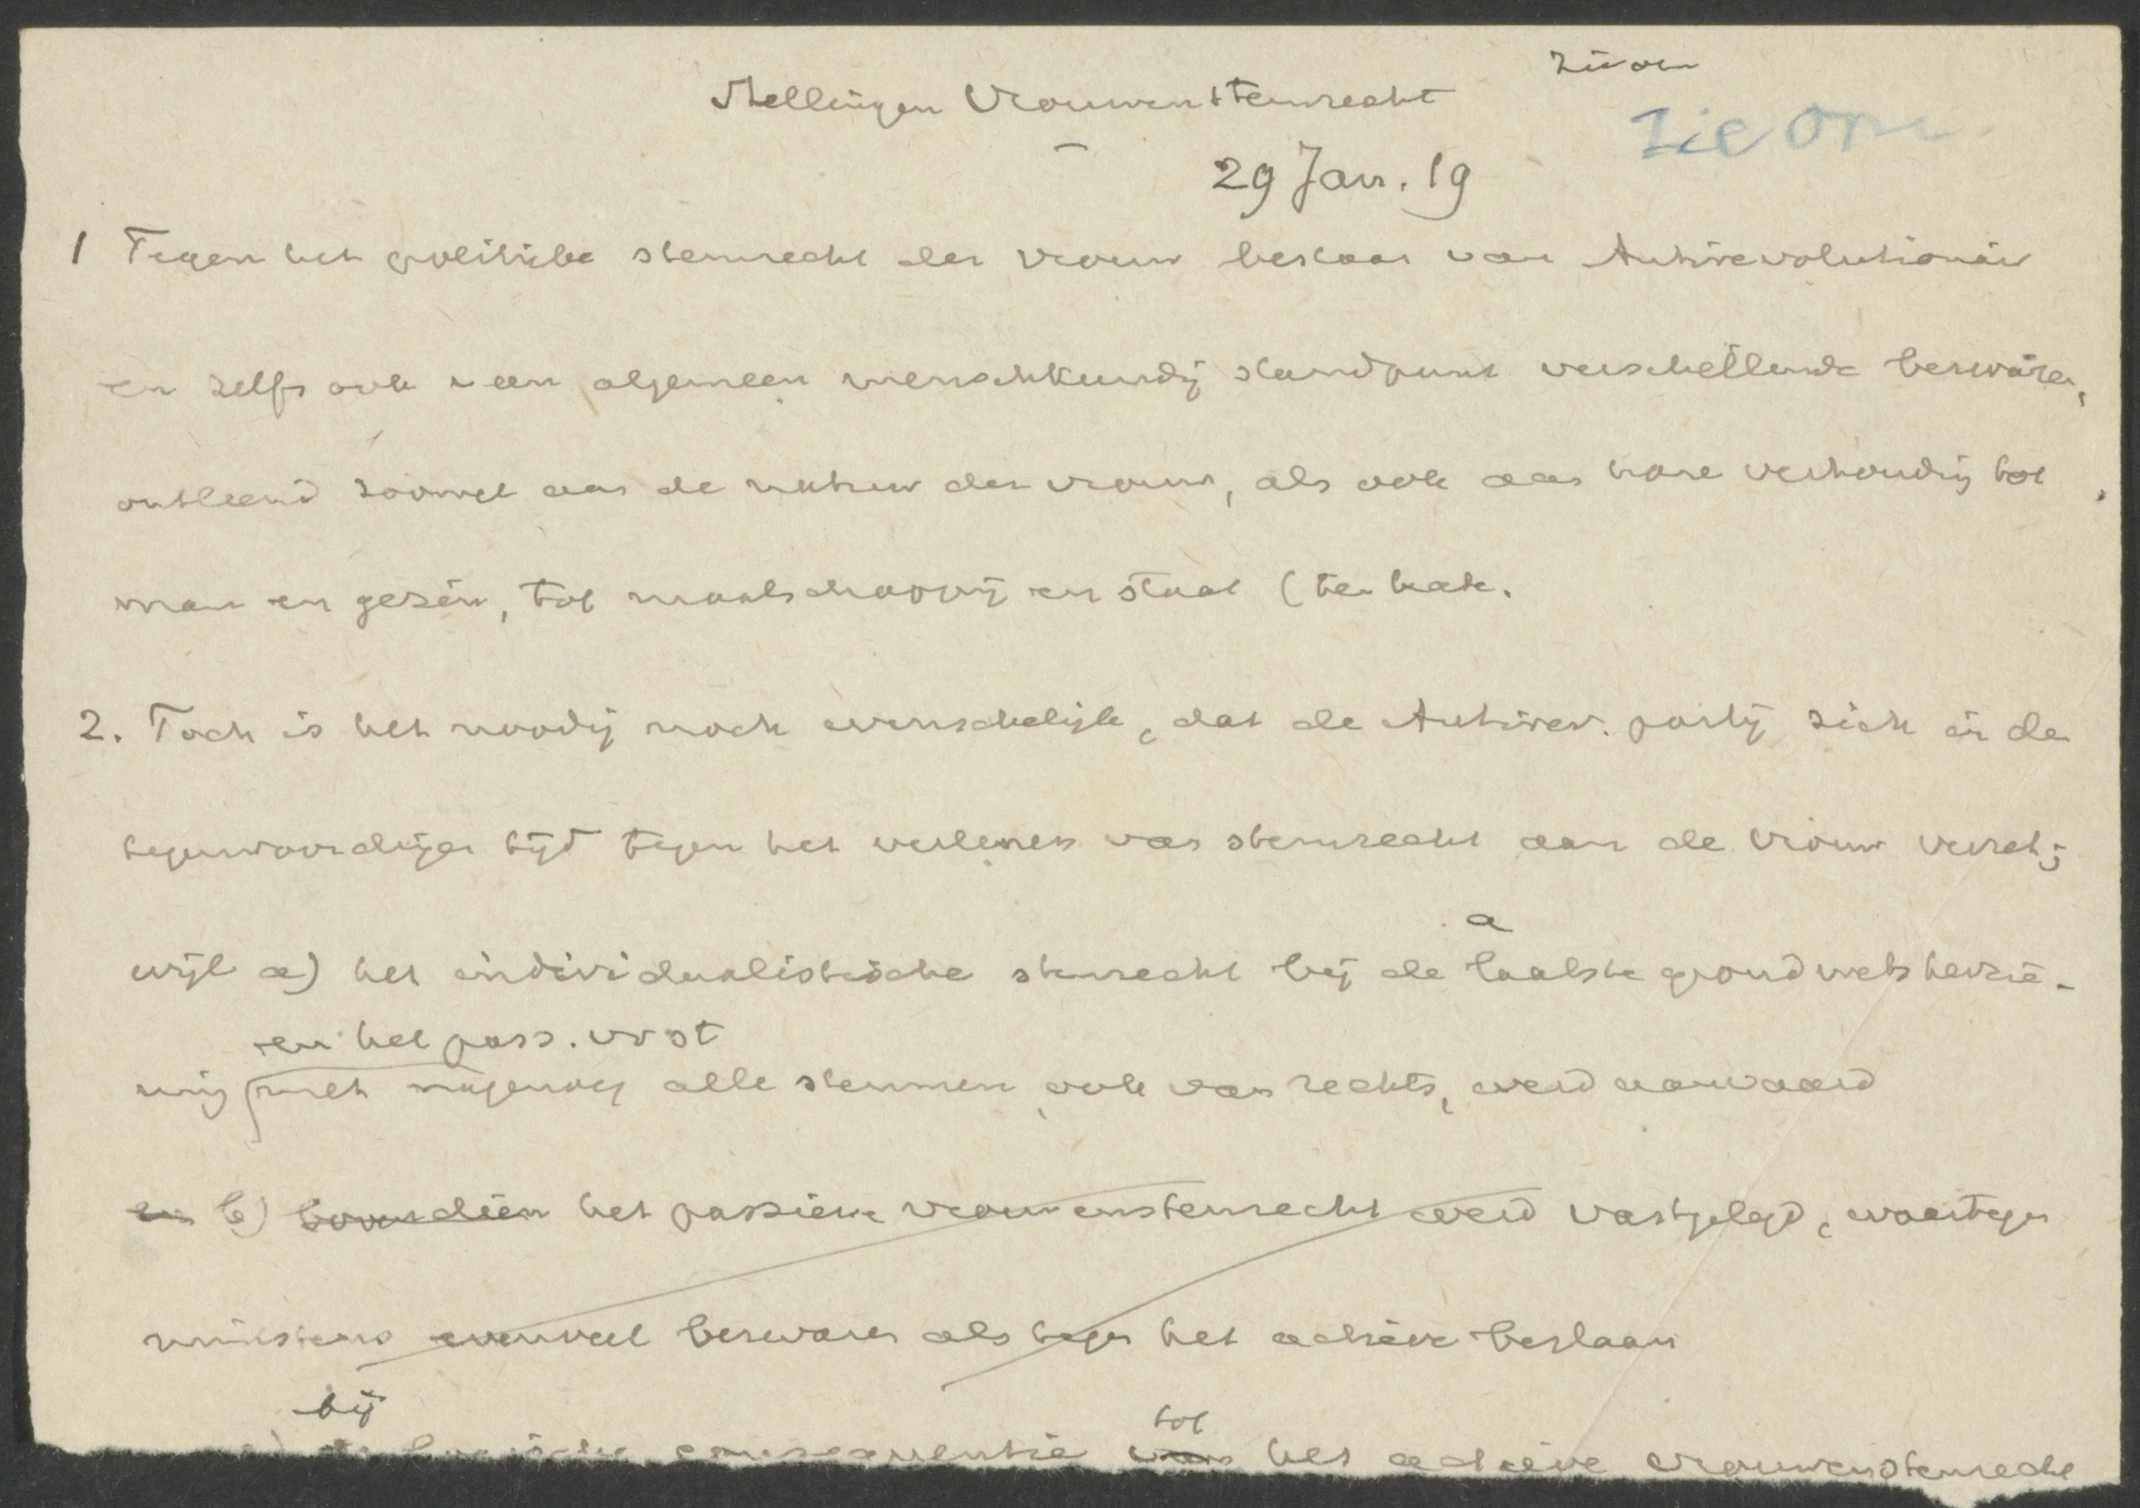 zie om
Stellingen Vrouwenstemrecht
zie om
29 Jan. 19
1 Tegen het politieke stemrecht der vrouw bestaan van Antirevolutionair
en zelfs ook v een algemeen menschkundig standpunt verschillende bezwaren,
ontleend zoowel aan de natuur der vrouw, als ook aan hare verhouding tot
man en gezin, tot maatschappij en staat
2. Toch is het noodig noch wenschelijk, dat de Antirev. partij zich in de
tegenwoordigen tijd tegen het verleenen van stemrecht aan de vrouw verzet;
a
wijl a) het individualistische stemrecht bij de laatste grondwetsherzie-
en het pass. vr st
ning met nagenoeg alle stemmen, ook van rechts, werd aanvaard
en b) bovendien het passieve vrouwenstemrecht werd vastgelegd, waartegen
minstens evenveel bezwaren als tegen het actieve bestaan
bij tot
de logische consequentie van het actieve vrouwenstemrecht